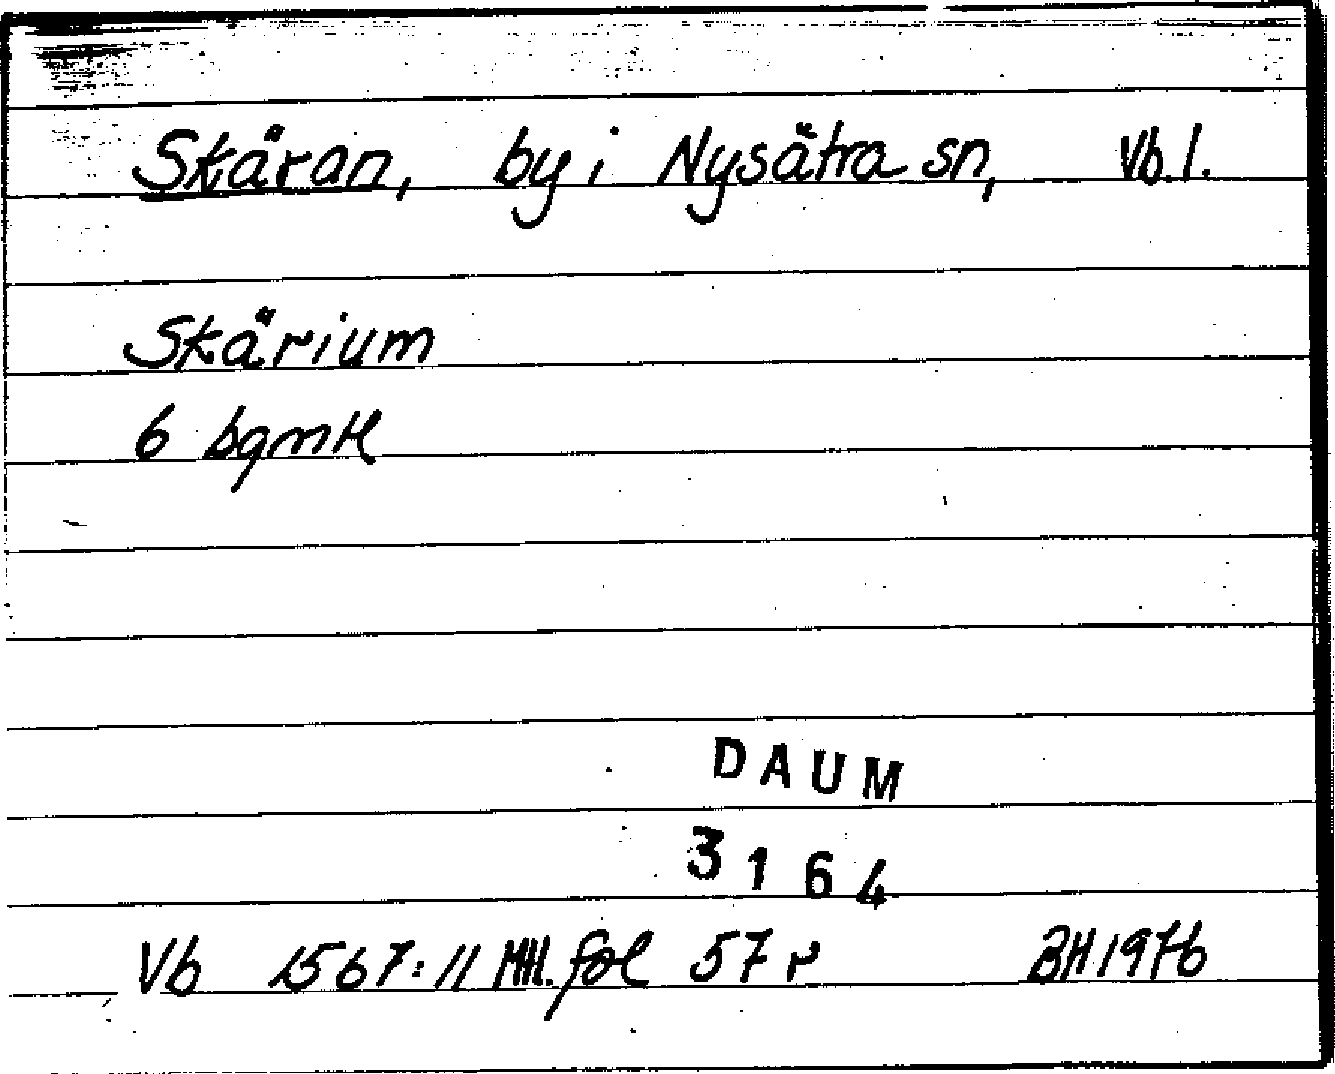 Skäran, by i Nysätra sn, Vb. l.
Skärium
6 bgmH
DAUM
3164
Vb 1567:11 MH. fol 57 r BH 1976